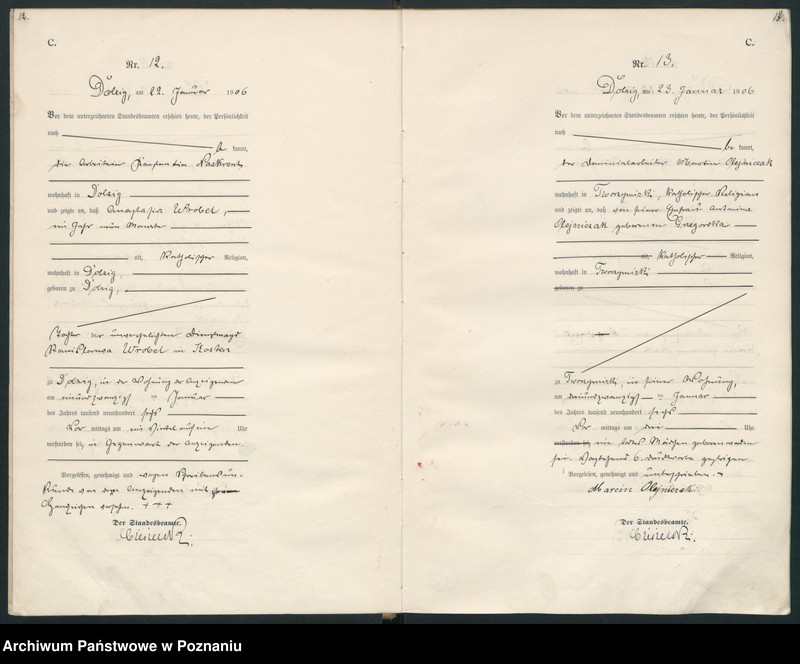 12.
C.
Nr. 12.
Dolzig, am 22. Januar 1906
Vor dem unterzeichneten Standesbeamten erschien heute, der Persönlichkeit
nach
be kannt,
die Arbeiterin Konstantia Naskrent
wohnhaft in Dolzig
und zeigte an, daß Anastasia Wrobel,
ein Jahr neun Monate
alt, katholischer Religion,
wohnhaft in Dolzig,
geboren zu Dolzig,
Tochter der unverehelichten Dienstmagd
Stanislawa Wrobel in Kosten
zu Dolzig, in der Wohnung der Anzeigenden
am einundzwanzigsten Januar
des Jahres tausend neunhundert sechs
Vor mittags um ein Viertel auf ein Uhr
verstorben sei, in Gegenwart der Anzeigenden.
Vorgelesen, genehmigt und wegen Schreibensun-
kunde von der Anzeigenden mit
Handzeichen versehen. + + +
Der Standesbeamte.
13.
C.
Nr. 13.
Dolzig, am 23. Januar 1906
Vor dem unterzeichneten Standesbeamten erschien heute, der Persönlichkeit
nach
be kannt,
der Dominialarbeiter Martin Olejniczak
wohnhaft in , katholischer Religion
und zeigte an, daß von seiner Ehefrau Antonina
Olejniczak geborenen Gregorska
alt, katholischer Religion,
wohnhaft in
geboren zu
zu , in seiner Wohnung,
am Januar
des Jahres tausend neunhundert sechs
Vor mittags um drei Uhr
verstorben sei, ein totes Mädchen geboren worden
sei. Vorstehend 6 Druckworte gestrichen.
Vorgelesen, genehmigt und unterschrieben.
Marcin Olejniczak
Der Standesbeamte.
Archiwum Państwowe w Poznaniu